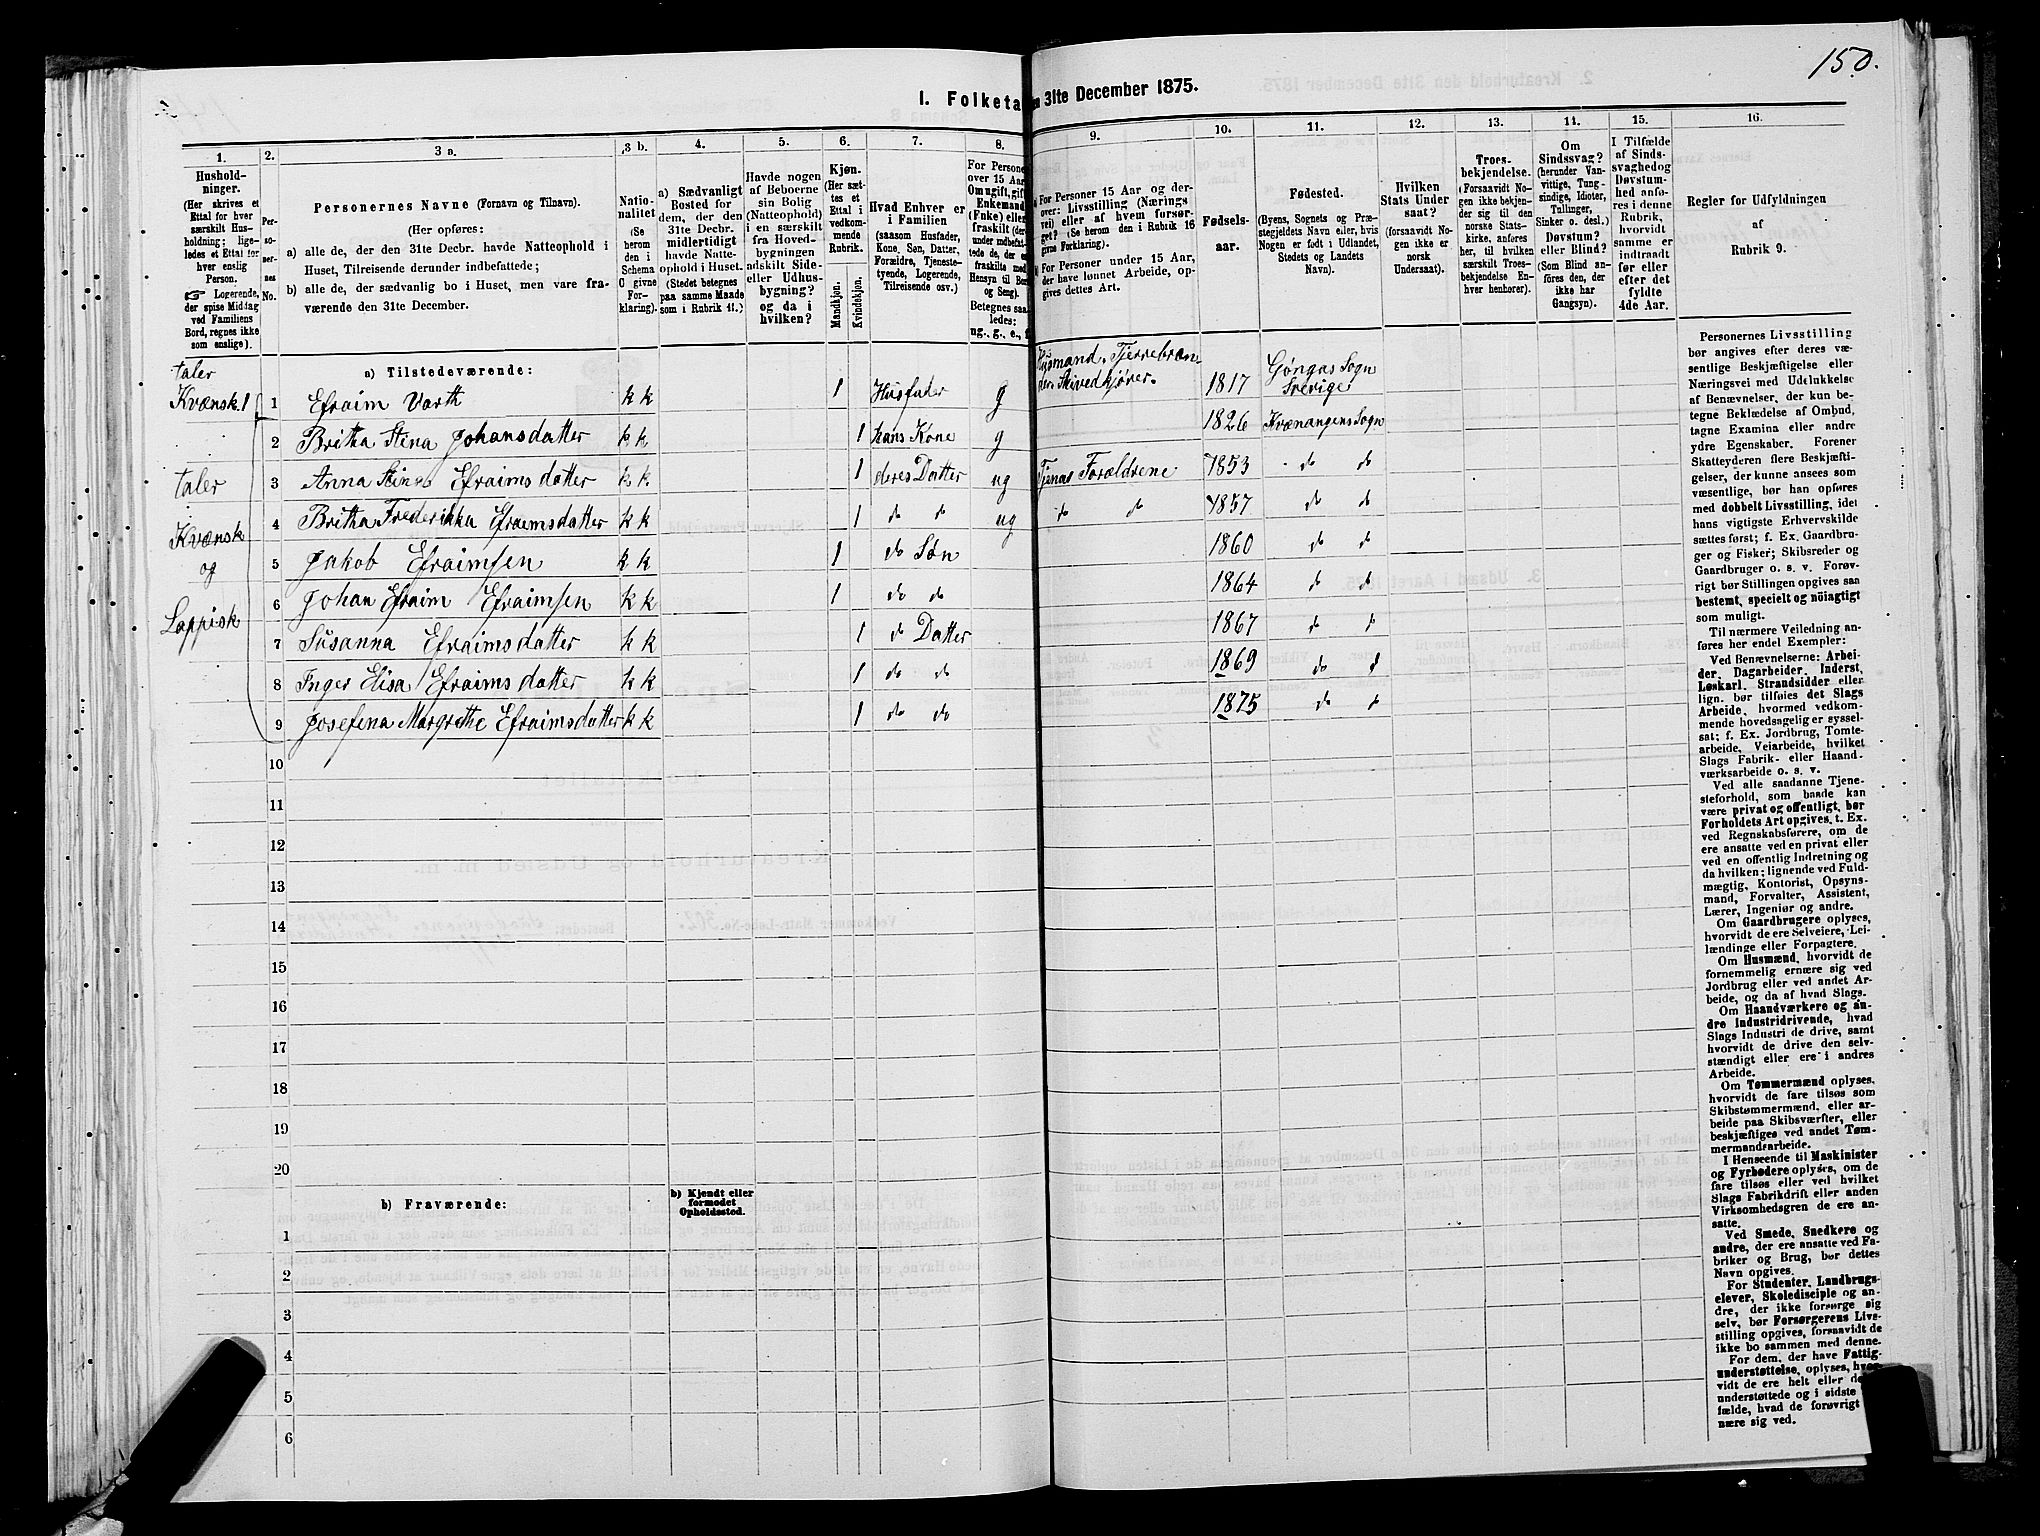 150.
1. Folketa
n 31te December 1875.
1.
2.
3 a.
3 b.
4.
5.
6.
7.
8.
9.
10.
11.
12.
13.
14.
15.
16.
Hushold-
ninger.
(Her skrives et
Ettal for hver
særskilt Hus-
holdning; lige-
ledes et Ettal
for hver enslig
Person.
☞ Logerende,
der spise Middag
ved Familiens
Bord, regnes ikke
som enslige).
Per-
so-
ner-
nes
No.
Personernes Navne (Fornavn og Tilnavn).
(Her opføres:
a) alle de, der den 31te Decbr. havde Natteophold i
Huset, Tilreisende derunder indbefattede;
b) alle de, der sædvanlig bo i Huset, men vare fra-
værende den 31te December.
Natio-
nalitet
(Se
herom
den i
Schema
C givne
For-
klaring).
a) Sædvanligt
Bosted for
dem, der den
31te Decbr.
midlertidigt
havde Natte-
ophold i Huset.
(Stedet betegnes
paa samme Maade
som i Rubrik 11.)
Havde nogen
af Beboerne
sin Bolig
(Natteophold)
i en særskilt
fra Hoved-
bygningen
adskilt Side-
eller Udhus-
bygning?
og da i
hvilken?
Kjøn.
(Her sæt-
tes et
Ettal i
vedkom-
mende
Rubrik.
Mandkjøn.
Kvindekjøn.
Hvad Enhver er
i Familien
(saasom Husfader,
Kone, Søn, Datter,
Forældre, Tjeneste-
tyende, Logerende,
Tilreisende osv.)
For Persone
over 15 Aar
Om ugift, gift
Enkemand
(Enke) eller
fraskilt (der-
under indbefat-
tede de, der e
fraskilte med
Hensyn til Bo
og Seng).
Betegnes saa-
ledes:
ug., g., e., f
For Personer 15 Aar og der-
over: Livsstilling (Nærings
vei) eller af hvem forsør-
get? (Se herom de i Rubrik 16
givne Forklaring).
For Personer under 15 Aar,
der have lønnet Arbeide, op-
gives dettes Art.
Fødsels-
aar.
Fødested.
(Byens, Sognets og Præ-
stegjeldets Navn eller, hvis
Nogen er født i Udlandet,
Stedets og Landets
Navn).
Hvilken
Stats Under
saat?
(forsaavidt No-
gen ikke er
norsk
Undersaat).
Troes-
bekjendelse.
(Forsaavidt No-
gen ikke bekjen-
der sig til den
norske Stats-
kirke, anføres
her, til hvilken
særskilt Troes-
bekjendelse En-
hver henhører).
Om
Sindssvag?
(herunder Van-
vittige, Tung-
sindige, Idioter,
Tullinger,
Sinker o. desl.)
Døvstum?
eller Blind?
(Som Blind an-
føres den, der
ikke har
Gangsyn).
I Tilfælde
af Sinds-
svaghed og
Døvstum-
hed anfø-
res i denne
Rubrik,
hvorvidt
samme er
indtraadt
før eller
efter det
fyldte
4de Aar.
Regler for Udfyldningen
af
Rubrik 9.
a) Tilstedeværende:
taler
Kvænsk. 1
1 Efraim Varth k k 1 Husfader g Husmand. Tjerrebræn-
der. Skivedkjører. 1817 Göngas Sogn
Sverige
2 Britha Stena Johansdatter k k 1 hans Kone g 1826 Kvænangens Sogn
taler
3 Anna Stina Efraimsdatter k k 1 deres Datter ug Tjenas Forældrene 1853 do do
Kvænsk
4 Britha Frederikka Efraimsdatter k k 1 do do ug do do 1857 do do
og
5 Jakob Efraimsen k k 1 do Søn 1860 do do
Lappisk
6 Johan Efraim Efraimsen k k 1 do do 1864 do do
7 Susanna Efraimsdatter k k 1 do Datter 1867 do do
8 Inger Elisa Efraimsdatter k k 1 do do 1869 do do
9 Josefena Margrethe Efraimsdatter k k 1 do do 1875 do do
10
11
12
13
14
15
16
17
18
19
20
b) Fraværende:
b) Kjendt eller
formodet
Opholdssted.
1
2
3
4
5
6
Personernes Livsstilling
bør angives efter deres væ-
sentlige Beskjæftigelse eller
Næringsvei med Udelukkelse
af Benævnelser, der kun be-
tegne Beklædelse af Ombud,
tagne Examina eller andre
ydre Egenskaber. Forener
Skatteyderen flere Beskjæfti-
gelser, der kunne ansees som
væsentlige, bør han opføres
med dobbelt Livsstilling, idet
hans vigtigste Erhvervskilde
sættes først; f. Ex. Gaardbru-
ger og Fisker; Skibsreder og
Gaardbruger o. s. v. Forøv-
rigt bør Stillingen opgives saa
bestemt, specielt og nöiagtigt
som muligt.
Til nærmere Veiledning an-
føres her endel Exempler:
Ved Benævnelserne: Arbei-
der, Dagarbeider, Inderst,
Løskarl, Strandsidder eller
lign. bør tilføies det Slags
Arbeide, hvormed vedkom-
mende hovedsagelig er syssel-
sat; f. Ex. Jordbrug, Tomte-
arbeide, Veiarbeide, hvilket
Slags Fabrik- eller Haand-
værksarbeide o. s. v.
Ved alle saadanne Tjene-
steforhold, som baade kan
være privat og offentligt, bør
Forholdets Art opgives, t. Ex.
ved Regnskabsførere, om de
ere ansatte ved en privat eller
ved en offentlig Indretning og
da hvilken; lignende ved Fuld-
mægtig, Kontorist, Opsyns-
mand, Forvalter, Assistent,
Lærer, Ingeniør og andre.
Om Gaardbrugere oplyses,
hvorvidt de ere Selveiere, Lei-
lændinge eller Forpagtere.
Om Husmænd, hvorvidt de
fornemmelig ernære sig ved
Jordbrug eller ved andet Ar-
beide, og da af hvad Slags.
Om Haandværkere og an-
dre Industridrivende, hvad
Slags Industri de drive, samt
hvorvidt de drive den selv-
stændigt eller ere i andres
Arbeide.
Om Tømmermænd oplyses,
hvorvidt de fare tilsøs som
Skibstømmermænd, eller ar-
beide paa Skibsværfter, eller
beskjæftiges ved andet Tøm-
mermandsarbeide.
I Henseende til Maskinister
og Fyrbødere oplyses, om de
fare tilsøs eller ved hvilket
Slags Fabrikdrift eller anden
Virksomhedsgren de ere an-
satte.
Ved Smede, Snedkere og
andre, der ere ansatte ved Fa-
briker og Brug, bør dettes
Navn opgives.
For Studenter, Landbrugs-
elever, Skoledisciple og an-
dre, der ikke forsørge sig
selv, bør Forsørgerens Livs-
stilling opgives, forsaavidt de
ikke bo sammen med denne.
For dem, der have Fattig-
understøttelse, oplyses, hvor-
vidt de ere helt eller de
understøttede og i sidste
fælde, hvad de forøvrigt
nære sig ved.